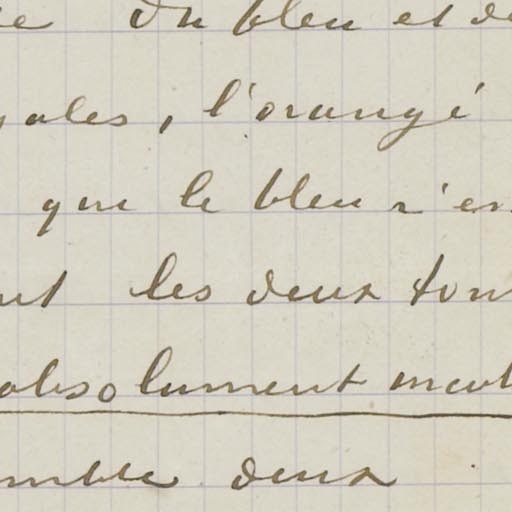 du bleu et de
gales, l'orangé
que le bleu n'en
les deux tons
absolument
semble deux